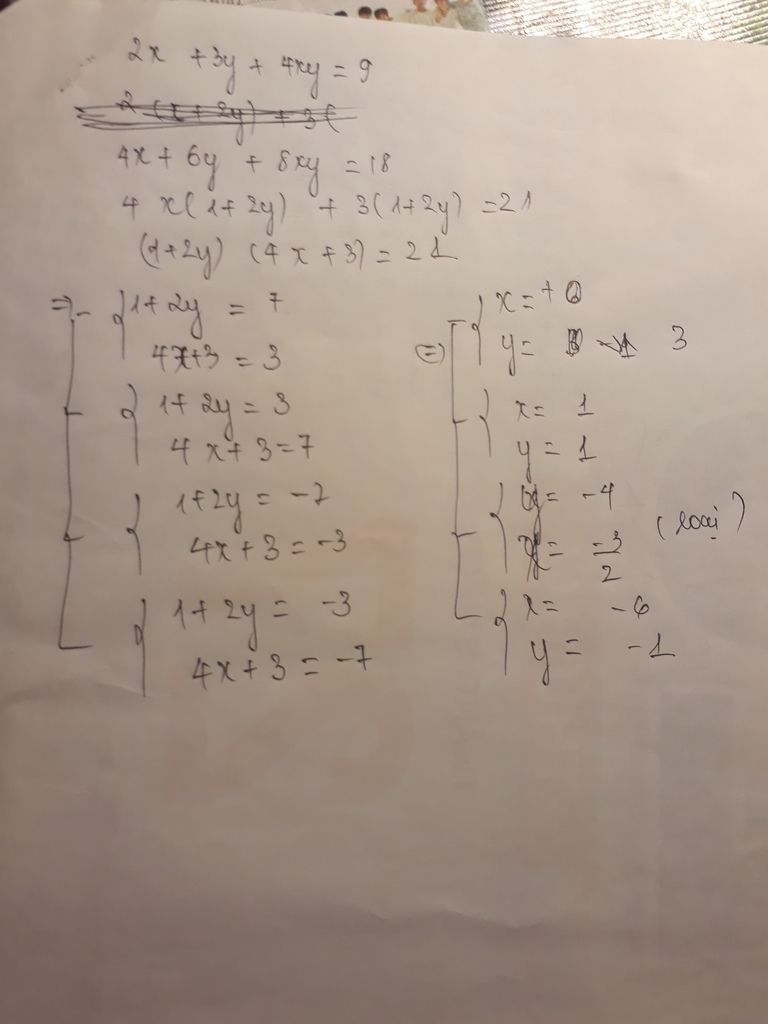 2x + 3y + 4xy = 9
4x + 6y + 8xy = 18
4x(1+2y) + 3(1+2y) = 21
(1+2y) (4x+3) = 21
=> { 1+2y = 7
4x+3 = 3
{ 1+2y = 3
4x+3 = 7
{ 1+2y = -7
4x+3 = -3
{ 1+2y = -3
4x+3 = -7
(=) { x = +0
y = 3
{ x = 1
y = 1
{ y = -4
x = -3/2 (loại)
{ x = -6
y = -1